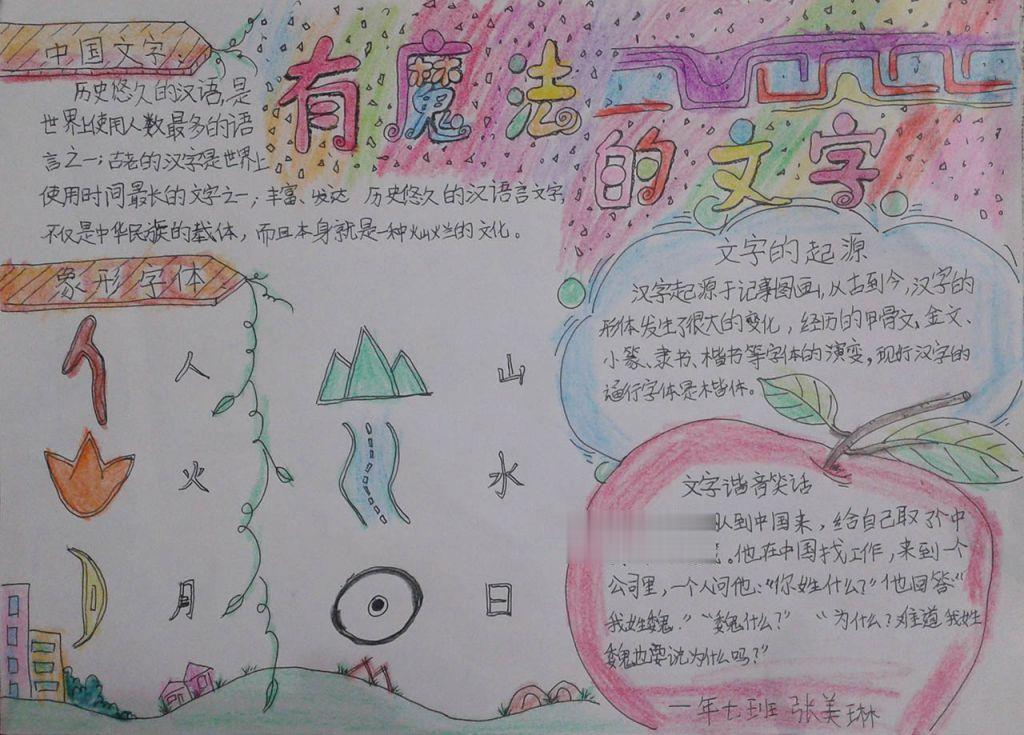 有魔法
的文字
中国文字:
历史悠久的汉语,是
世界上使用人数最多的语
言之一;古老的汉字是世界上
使用时间最长的文字之一;丰富、发达 历史悠久的汉语言文字,
不仅是中华民族的载体,而且本身就是一种灿烂的文化。
象形字体
人
山
火
水
月
日
文字的起源
汉字起源于记事图画,从古到今,汉字的
形体发生了很大的变化,经历的甲骨文,金文、
小篆、隶书、楷书等字体的演变,现行汉字的
通行字体是楷体。
文字谐音笑话
队到中国来,给自己取了个中
。他在中国找工作,来到一个
公司里,一个人问他:“你姓什么?”他回答:“
我姓魏.”“魏什么?” “为什么?难道我姓
魏也要说为什么吗?”
一年七班 张美琳